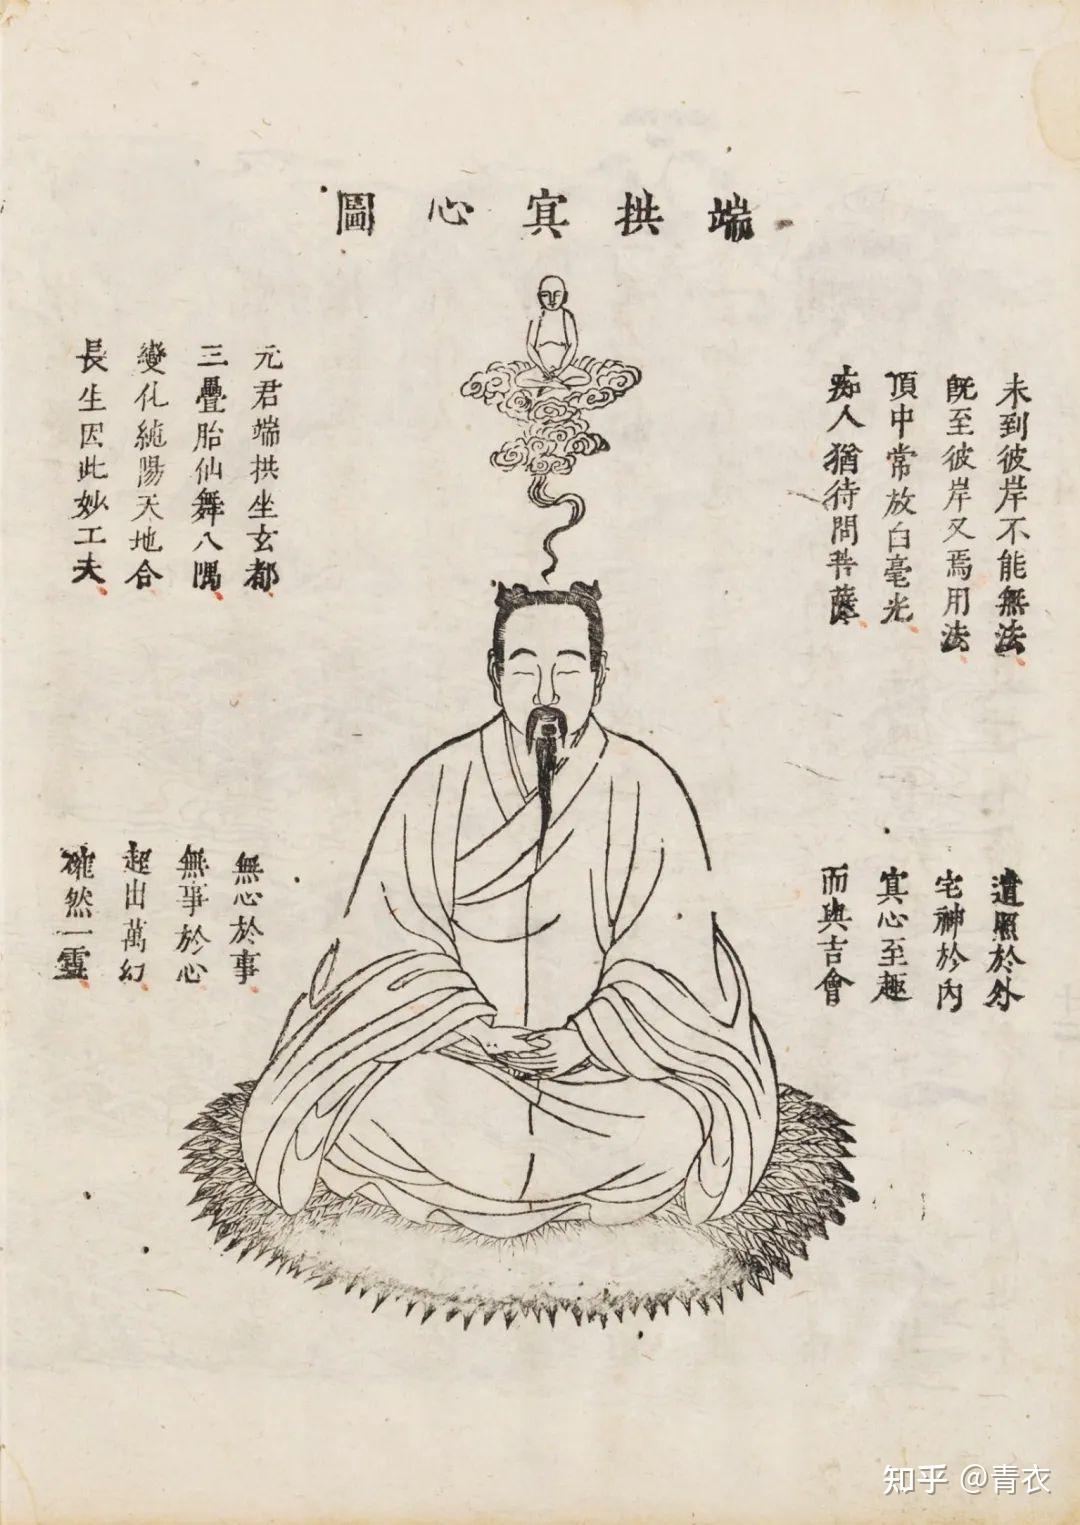 端拱㝠心圖
未到彼岸不能無法
既至彼岸又焉用法
頂中常放白毫光
痴人猶待問菩薩
元君端拱坐玄都
三疊胎仙舞八隅
變化純陽天地合
長生因此妙工夫
遺照於外
宅神於內
㝠心至趣
而與吉會
無心於事
無事於心
超出萬幻
確然一靈
知乎 @青衣